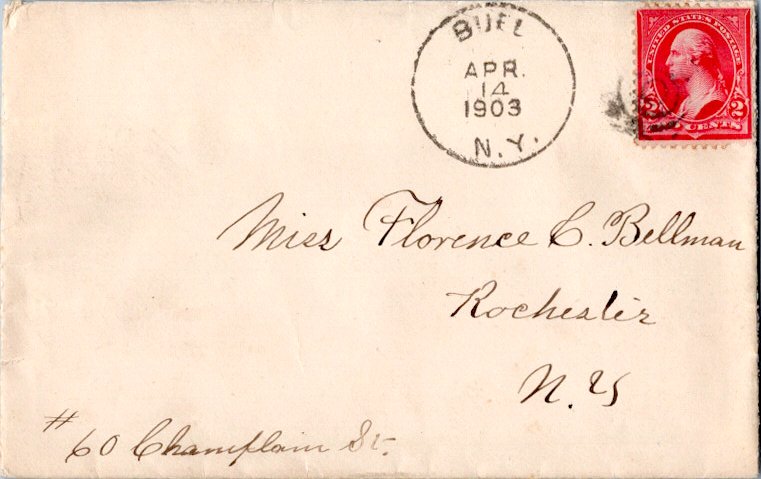 BUEL
APR.
14
1903
N.Y.
UNITED STATES POSTAGE
2 CENTS
Miss Florence C. Bellman
Rochester
N. Y
# 60 Champlain St.